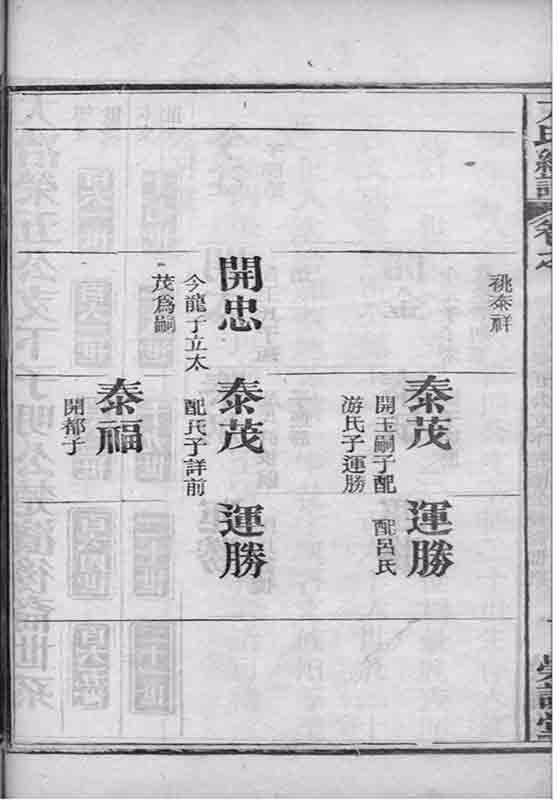 氏總譜
卷之
祧泰祥
泰茂
開玉嗣子配
游氏子運勝
運勝
配呂氏
開忠
今龍子立太
茂爲嗣
泰茂
配氏子詳前
運勝
泰福
開郁子